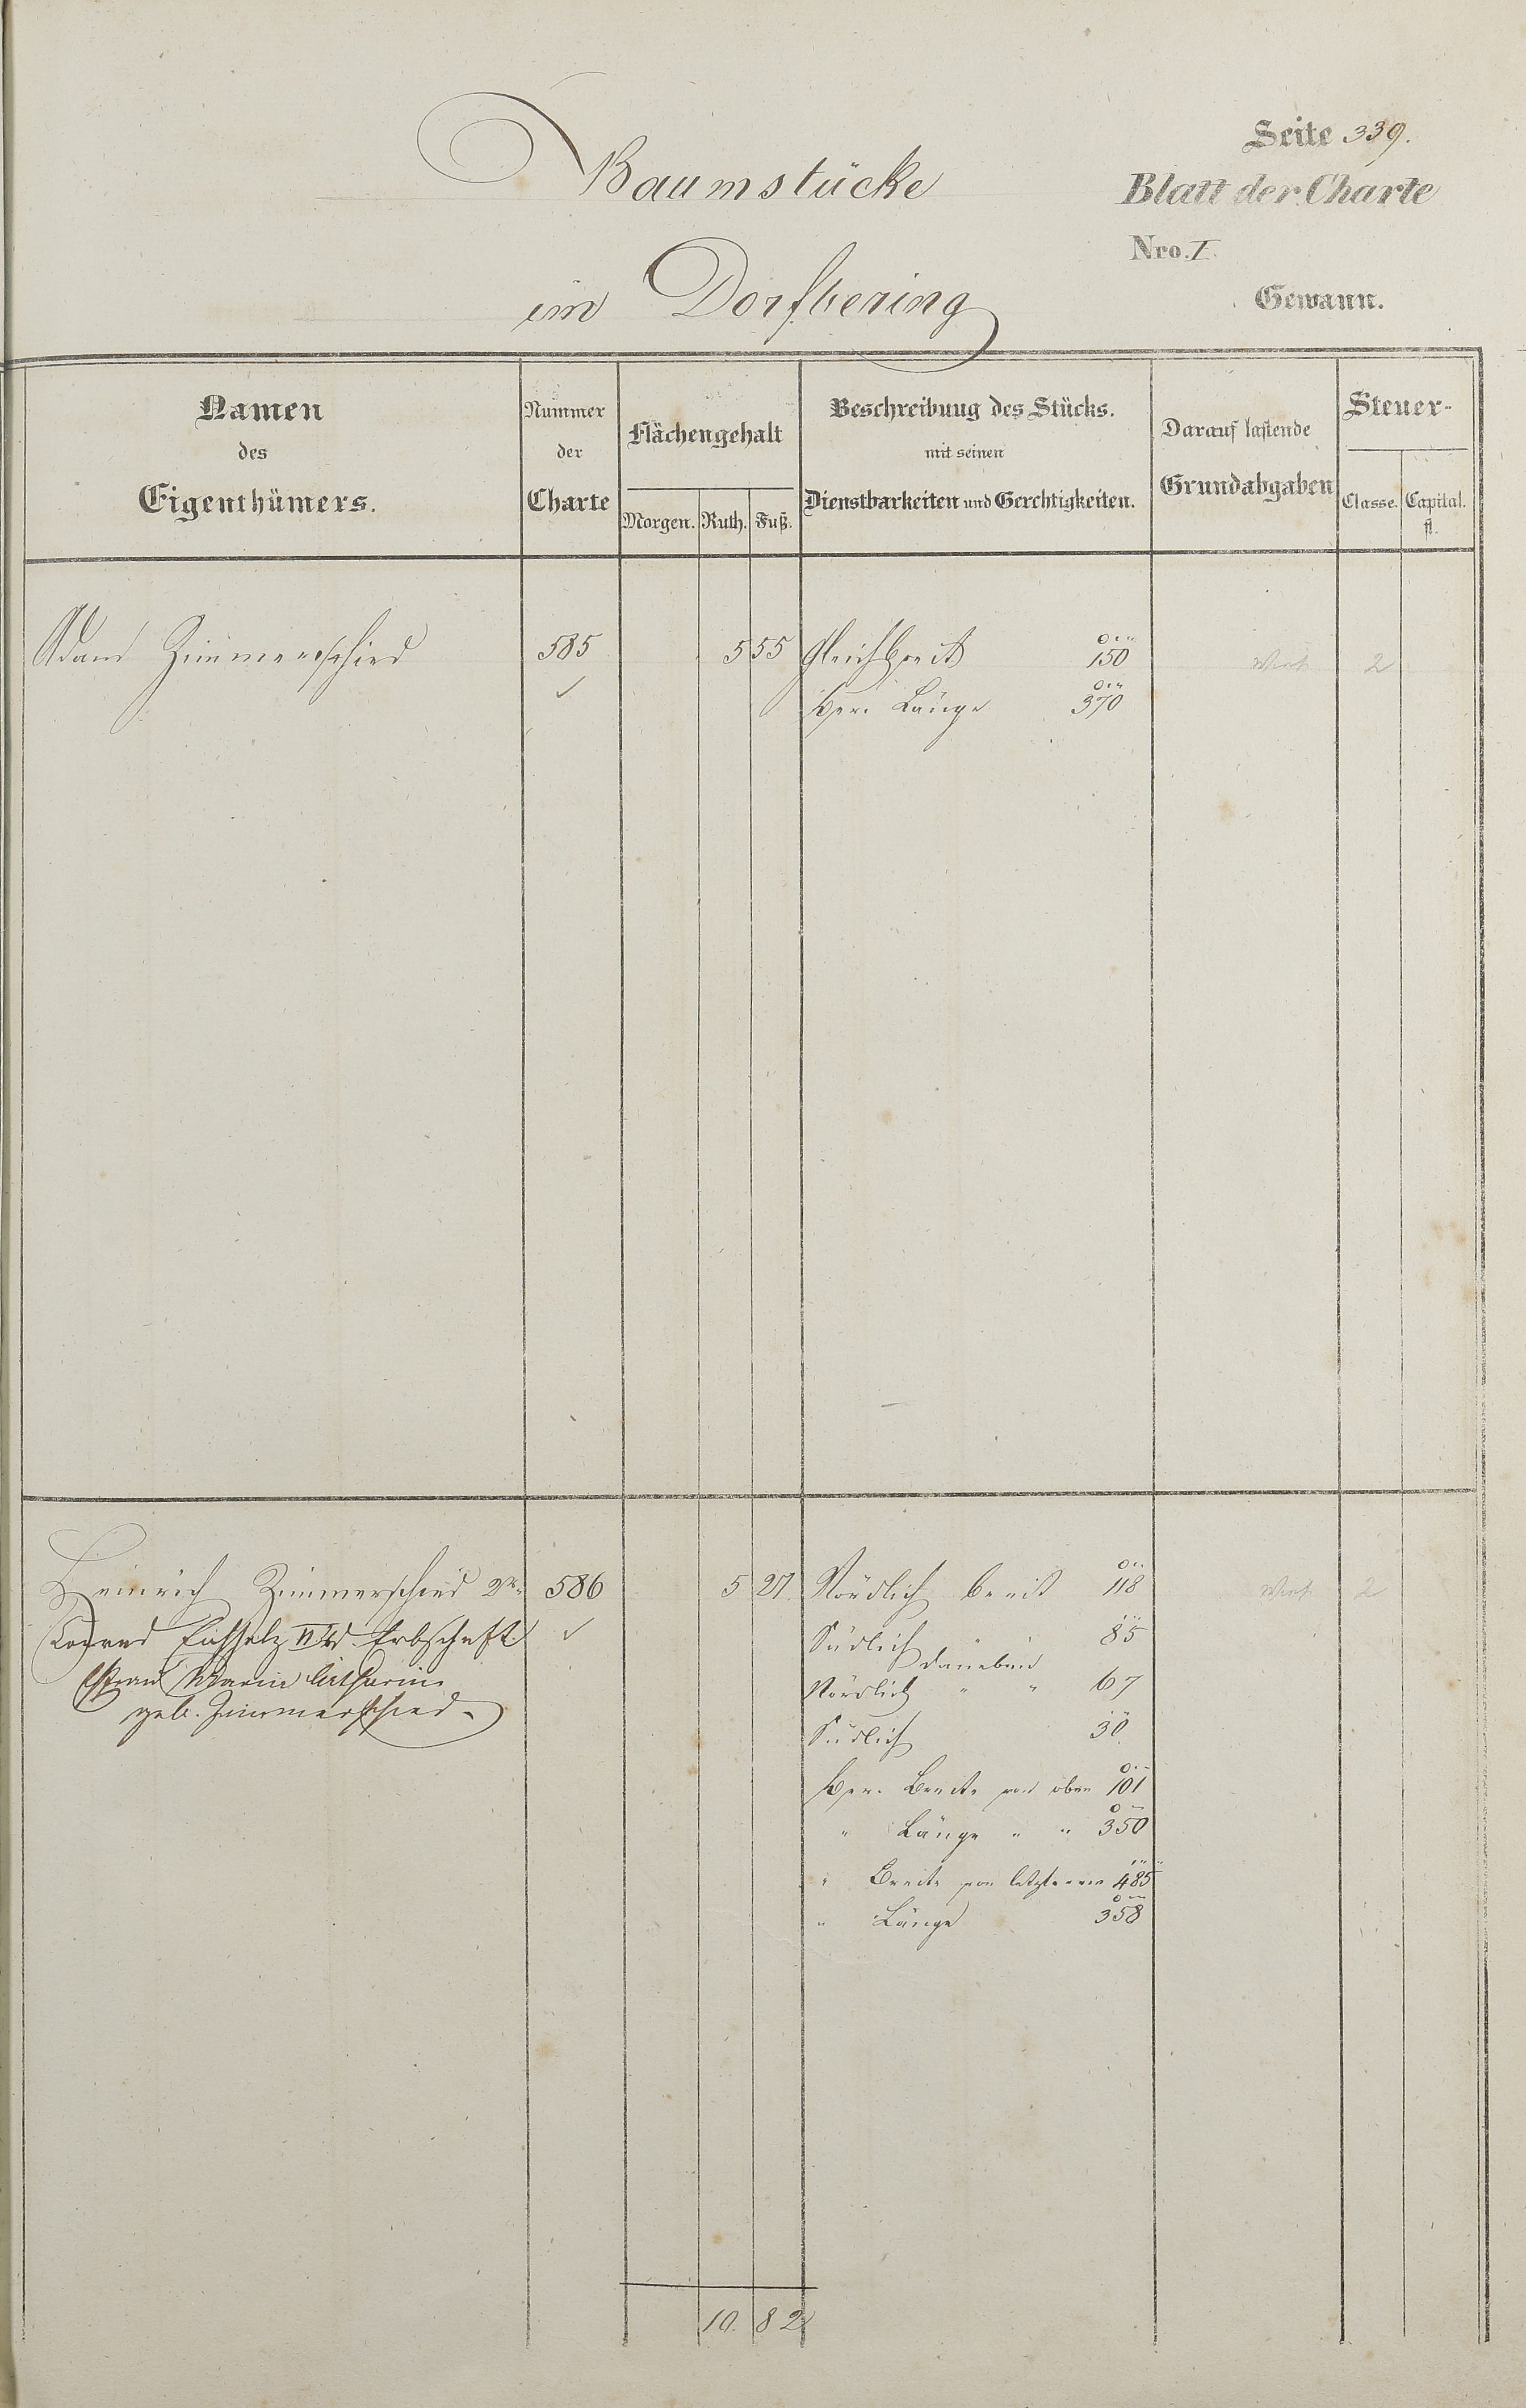 Seite 339.
Baumstücke
Blatt der Charte
Nro. I.
im Dorfbering
Gewann.
Namen des Eigenthümers.
Nummer der Charte
Flächengehalt
Morgen. Ruth. Fuß.
Beschreibung des Stücks.
mit seinen
Dienstbarkeiten und Gerchtigkeiten.
Darauf lastende
Grundabgaben
Steuer-
Classe. Capital. fl.
Adam Zimmerschied 585 5 55 Gleichbreit 150 2
Ger. Länge 370
Heinrich Zimmerschied 2r 586 5 27 Nördlich breit 118 2
Conrad Eichholz II Erbschaft Südlich " 85
daneben
Ehefrau Maria Catharine Nördlich " " 67
geb. Zimmerschied Südlich 30
Ger. Breite von oben 101
" Länge " " 350
" Breite von letzterem 485
" Länge 358
10. 82